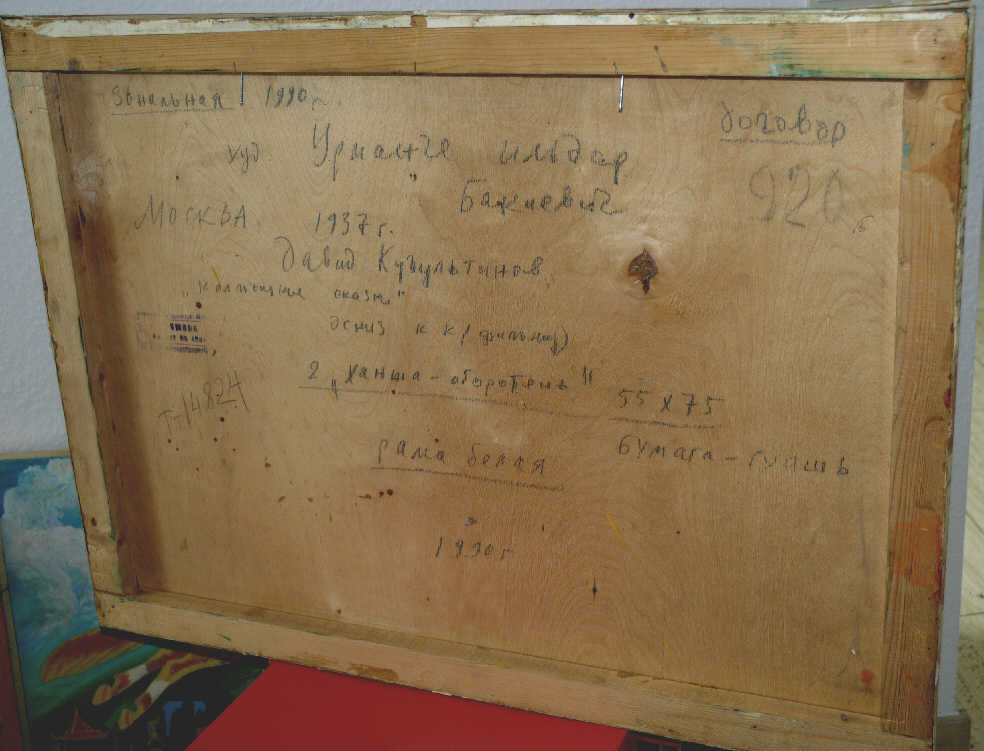 Зональная 1990 г.
договор
худ Урманче Ильдар
920
Бакиевич
Москва 1937 г.
Давид Кугультинов
эскиз к к/фильму)
2 "Ханша-оборотень" 55 х 75
Т-14824
рама белая бумага-гуашь
1990 г